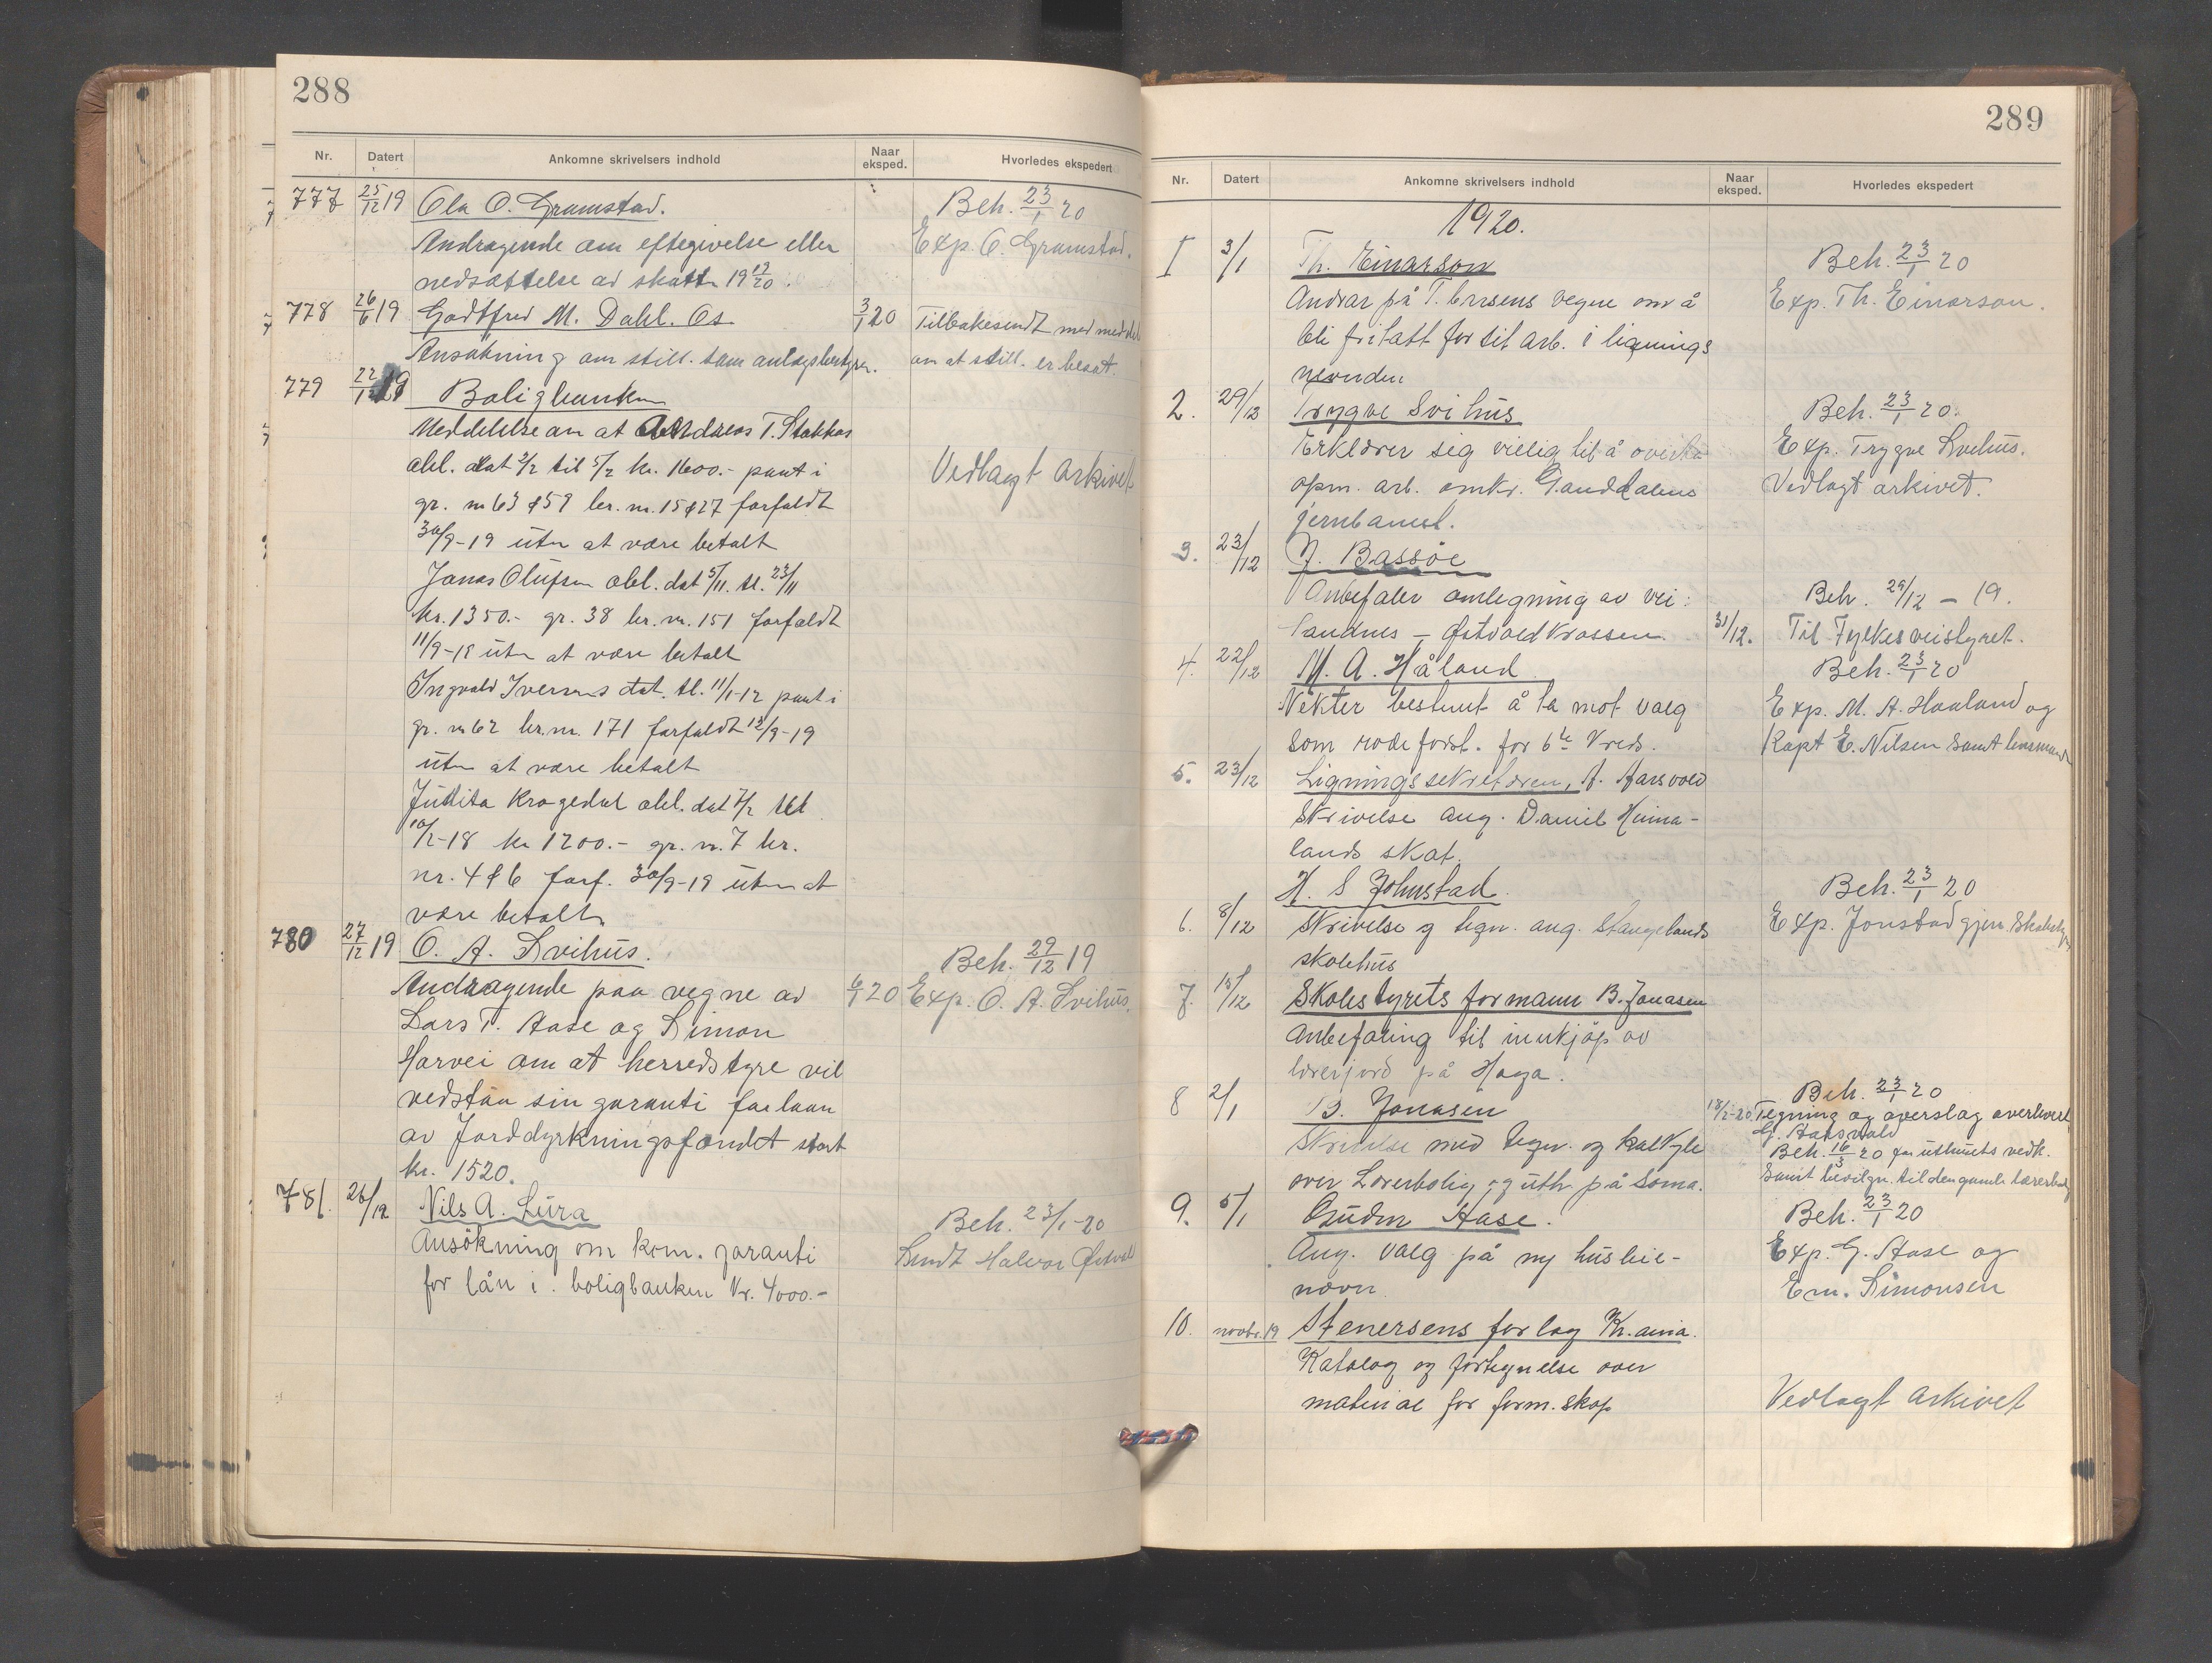 288
Nr. Datert Ankomne skrivelsers indhold Naar eksped. Hvorledes ekspedert
777 25/12 19 Ola O. Gramstad. Beh. 23/1 20
Andragende om eftegivelse eller Exp. O. Gramstad.
nedsættelse av skatt 19 19/20.
778 26/6 19 Godtfred M. Dahl. Os 3/1 20 Tilbakesendt med
Ansøkning om still. som om at still. er besat.
779 22/12 19 Boligbanken
Meddelelse om at Andreas T. Stokkas
obl. dat 3/2 til 5/2 kr. 1600.- pant i Vedlagt arkivet
gr. nr 63 & 59 br. nr. 15 & 27 forfaldt
30/9-19 uten at være betalt
Jonas Olufsen obl. dat 5/11. tl. 23/11
kr. 1350.- gr. 38 br. nr. 151 forfaldt
11/9-18 uten at være betalt
Ingvald Iversens dat. tl. 11/1-12 pant i
gr. nr 62 br. nr. 171 forfaldt 12/9-19
uten at være betalt
Judita Kragedal obl. dat 7/2 tl
10/2-18 kr 1200.- gr. nr. 7 br.
nr. 4 & 6 forf. 30/9-19 uten at
være betalt
780 27/12 19 O. A. Svihus. Beh. 29/12 19
Andragende paa vegne av 6/1 20 Exp. O. A. Svihus.
Lars T. Aase og Simon
Harvei om at herredstyre vil
vedstaa sin garanti for laan
av Jorddyrkningsfondet stort
kr. 1520.
781. 26/12 Nils A. Lura Beh. 23/1-20
Ansøkning om kom. garanti Sendt Halvor
for lån i boligbanken kr. 4000.-
289
Nr. Datert Ankomne skrivelsers indhold Naar eksped. Hvorledes ekspedert
1920.
I 3/1 Th. Einarson Beh. 23/1 20
Andrar på T. vegne om å Exp. Th. Einarson.
bli fritatt for sit arb. i lignings
nevnden
2. 29/12 Trygve Svihus Beh. 23/1 20.
Erklærer sig villig til å overta Exp. Trygve Svihus.
opm. arb. omkr. Ganddalens Vedlagt arkivet.
jernbanest.
3. 23/12 J. Bassøe
Anbefaler omlegning av vei: Beh. 29/12 - 19.
Sandnes - Østvoldkrossen. 31/12. Til Fylkesveistyret.
4. 22/12 M. A. Håland Beh. 23/1 20
Nekter bestemt å ta mot valg Exp. M. A. Haaland og
som rodeforst. for 6te Vreds. Kapt E. Nilsen samt lensmand
5. 23/12 Ligningssekretæren, A. Aarsvold
Skrivelse ang. Daniel Heima-
lands skat.
H. S Johnstad. Beh. 23/1 20
6. 8/12 Skrivelse og tegn. ang. Stangelands Exp. Jonstad gjen.
skolehus
7. 15/12 Skolestyrets formann B. Jonasen
Anbefaling til innkjøp av
lærerjord på Hana.
8 2/1 B. Jonasen Beh. 23/1 20
Skrivelse med tegn. og kalkyle 18/2-20. Tegning og overslag
G. Aarsvold
Beh. 16/3 20 for uthusets vedk.
over Lærerbolig og uth. på Soma. samt bevilgn. til den gamle
9. 5/1 Gudm Aase. Beh. 23/1 20
Ang. valg på ny husleie- Exp. G. Aase og
nævn Em. Simonsen
10. novbr. 19 Stenersens forlag Kr.ania.
Katalog og fortegnelse over
materiae for form. skap Vedlagt arkivet